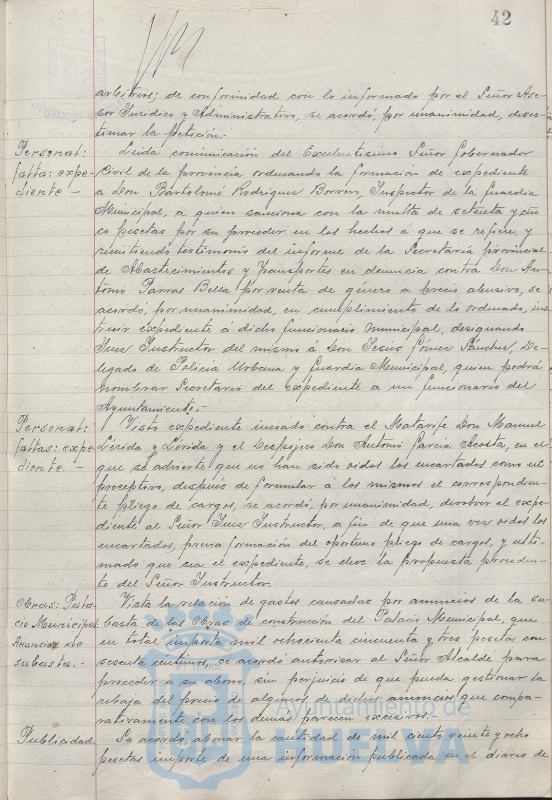 42
arbitrios; de conformidad con lo informado por el Señor Ase-
sor Jurídico y Administrativo, se acordó, por unanimidad, deses-
timar la petición.-
Personal:
falta: expe-
diente -
Leida comunicación del Excelentisimo Señor Gobernador
Civil de la provincia ordenando la formación de expediente
a Don Bartolomé Rodriguez Borrero, Inspector de la Guardia
Municipal, a quien sanciona con la multa de setenta y cin
co pesetas por su proceder en los hechos a que se refiere, y
remitiendo testimonio del informe de la Secretaría provincial
de Abastecimientos y Transportes en denuncia contra Don An-
tonio Parras Bella por venta de género a precio abusivo, se
acordó, por unanimidad, en cumplimiento de lo ordenado, ins
truir expediente á dicho funcionario municipal, designando
Juez Instructor del mismo á Don Jesús Gómez Sánchez, De-
legado de Policia Urbana y Guardia Municipal, quien podrá
nombrar Secretario del expediente a un funcionario del
Ayuntamiento.-
Personal:
faltas: expe-
diente. -
Visto expediente incoado contra el Matarife Don Manuel
Lérida y Lérida y el Despojero Don Antonio García Acosta, en el
que se advierte que no han sido oidos los encartados como es
preceptivo, después de formular á los mismos el correspondien-
te pliego de cargos, se acordó, por unanimidad, devolver el expe-
diente al Señor Juez Instructor, a fin de que una vez oidos los
encartados, previa formación del oportuno pliego de cargos, y ulti-
mado que sea el expediente, se eleve la propuesta proceden-
te del Señor Instructor.
Obras: Pala
cio Municipal
Anuncios
subasta.-
Vista la relación de gastos causados por anuncios de la su-
basta de las Obras de construcción del Palacio Municipal, que
en total importa mil ochocientas cincuenta y tres pesetas con
sesenta centimos, se acordó autorizar al Señor Alcalde para
proceder a su abono, sin perjuicio de que pueda gestionar la
rebaja del precio de algunos de dichos anuncios que compa-
rativamente con los demás parecen excesivos.-
Publicidad.
Se acordó abonar la cantidad de mil ciento veinte y ocho
pesetas importe de una información publicada en el diario de
Ayuntamiento de
HUELVA